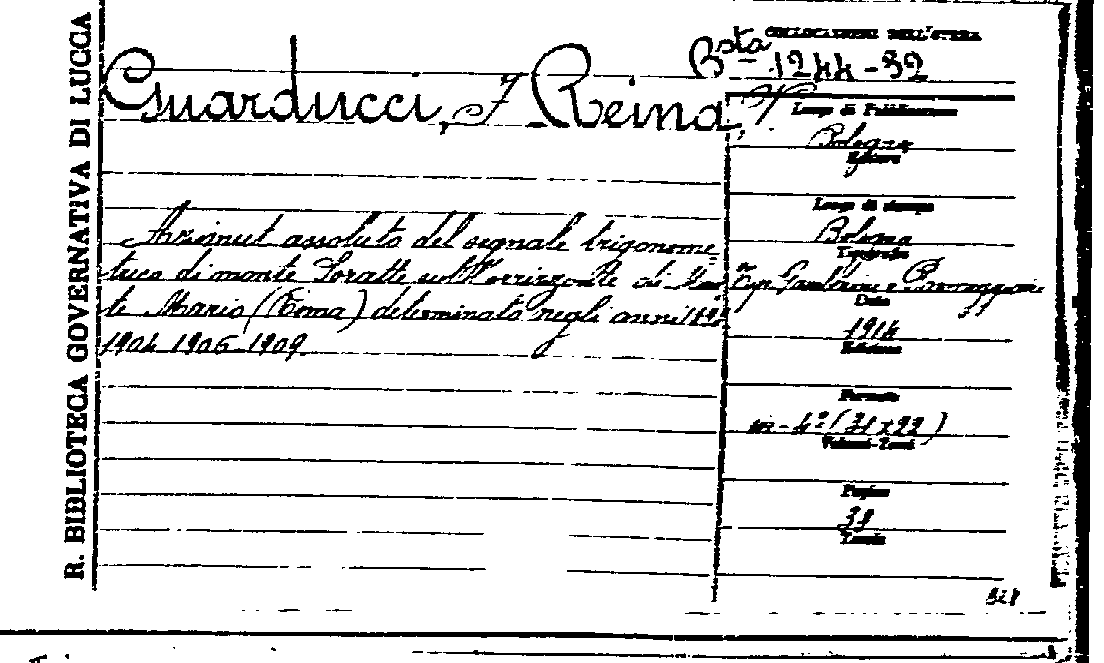 R. BIBLIOTECA GOVERNATIVA DI LUCCA
COLLOCAZIONE DELL'OPERA
Bsta 1244-32
Guarducci, F Reina, V
Luogo di Pubblicazione
Bologna
Editore
Luogo di stampa
Bologna
Tipografia
Tip. Gamberini e Parmeggiani
Data
1914
Edizione
Formato
in-4° (31x22)
Volumi-Tomi
Pagine
38
Tavole
Azimut assoluto del segnale trigonome
trico di monte Soratte sull'Horrizzonte di Mon
te Mario (Roma) determinato negli anni
1904 1906 1909
328